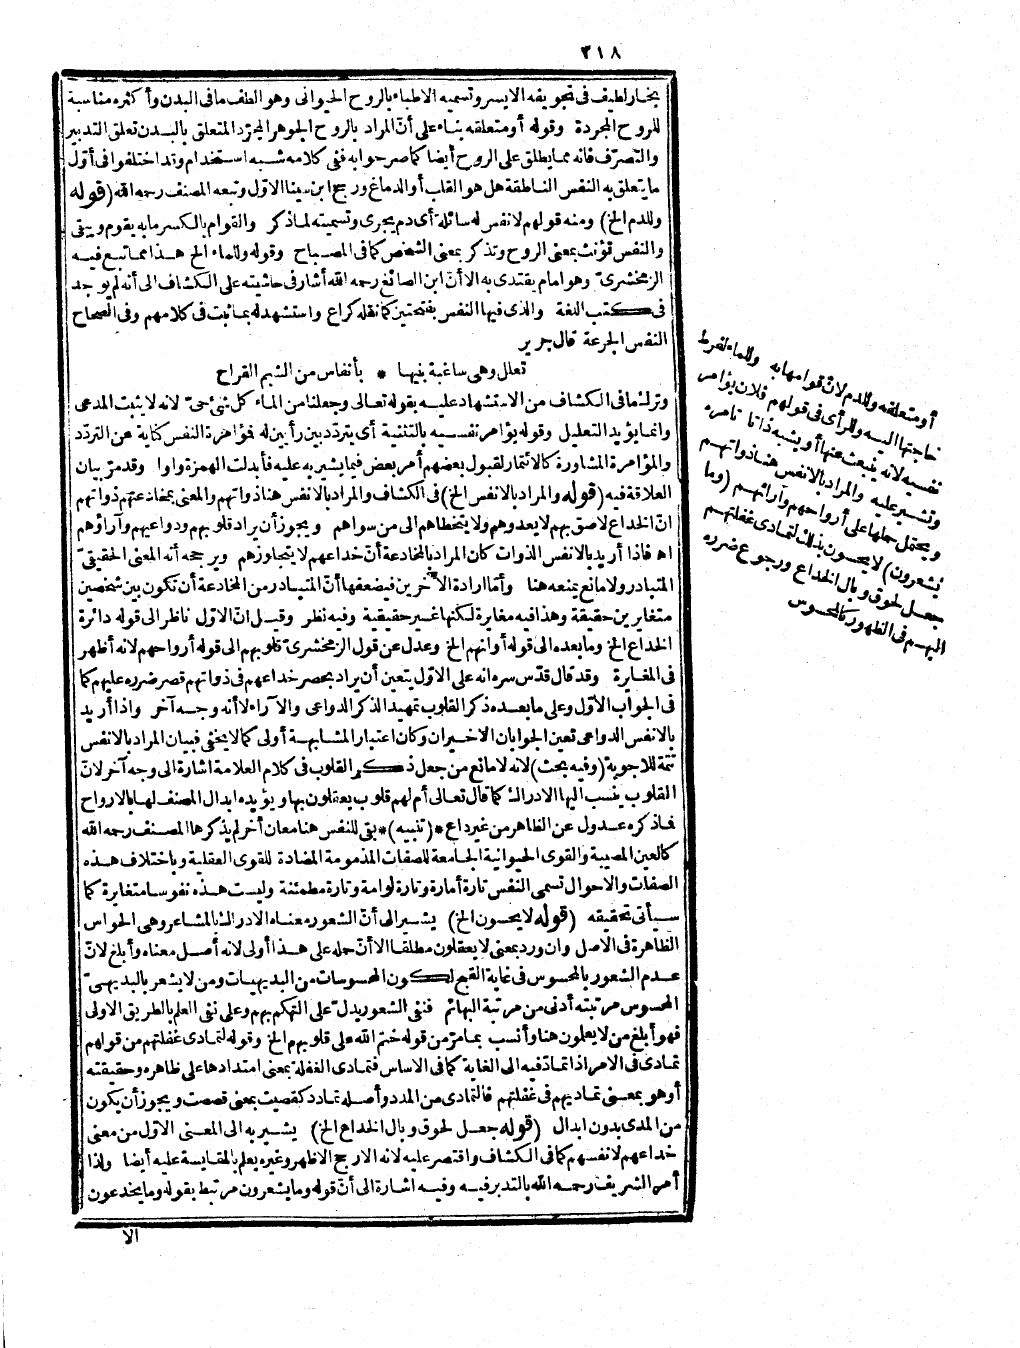 ٣١٨
بخار لطيف فى تجويفه الايسر وتسميه الاطباء بالروح الحيوانى وهو الطف ما فى البدن وأكثره مناسبة
للروح المجردة وقوله أو متعلقه بناء على أنّ المراد بالروح الجوهر المجرّد المتعلق بالبدن تعلق التدبير
والتصرّف فانه مما يطلق على الروح أيضا كما صرحوا به ففى كلامه شبه استخدام وقد اختلفوا فى أوّل
ما يتعلق به النفس الناطقة هل هو القلب أو الدماغ ورجح ابن سينا الاوّل وتبعه المصنف رحمه الله (قوله
وللدم الخ) ومنه قولهم لا نفس له سائلة أى دم يجرى وتسميته لما ذكر والقوام بالكسر ما به يقوم ويبقى
والنفس تؤنث بمعنى الروح وتذكر بمعنى الشخص كما فى المصباح وقوله وللماء الخ هذا مما تبع فيه
الزمخشرىّ وهو امام يقتدى به الا أنّ ابن الصائغ رحمه الله أشار فى حاشيته على الكشاف الى أنه لم يوجد
فى كتب اللغة والذى فيها النفس بفتحتين كما نقله كراع واستشهد له بما ثبت فى كلامهم وفى الصحاح
النفس الجرعة قال جرير
تعلل وهى ساغبة بنيها * بأنفاس من الشبم القراح
وترك ما فى الكشاف من الاستشهاد عليه بقوله تعالى وجعلنا من الماء كل شئ حىّ لانه لا يثبت المدعى
وانما يؤيد التعليل وقوله يؤامر نفسيه بالتثنية أى يتردّد بين رأيين له فؤامرة النفس كناية عن التردّد
والمؤامرة المشاورة كالائتمار لقبول بعضهم أمر بعض فيما يشير به عليه فأبدلت الهمزة واوا وقد مرّ بيان
العلاقة فيه (قوله والمراد بالانفس الخ) فى الكشاف والمراد بالانفس هنا ذواتهم والمعنى بمخادعتهم ذواتهم
انّ الخداع لاصق بهم لا يعدوهم ولا يتخطاهم الى من سواهم ويجوز أن يراد قلوبهم ودواعيهم وآراؤهم
اه فاذا أريد بالانفس الذوات كان المراد بالمخادعة أنّ خداعهم لا يتجاوزهم ويرجحه أنه المعنى الحقيقىّ
المتبادر ولا مانع يمنعه هنا وأمّا ارادة الآخرين فيضعفها أنّ المتبادر من المخادعة أن تكون بين شخصين
متغايرين حقيقة وهذا فيه مغايرة لكنها غير حقيقية وفيه نظر وقيل انّ الاوّل ناظر الى قوله دائرة
الخداع الخ وما بعده الى قوله أو انهم الخ وعدل عن قول الزمخشرىّ قلوبهم الى قوله أرواحهم لانه أظهر
فى المغايرة وقد قال قدّس سره انه على الاوّل يتعين أن يراد بحصر خداعهم فى ذواتهم قصر ضرره عليهم كما
فى الجواب الاوّل وعلى ما بعده ذكر القلوب تمهيد الذكر الدواعى والآراء لا أنه وجه آخر واذا أريد
بالانفس الدواعى تعين الجوابان الاخيران وكان اعتبار المشابهة أولى كما لا يخفى فبيان المراد بالانفس
تتمة للاجوبة (وفيه بحث) لانه لا مانع من جعل ذكر القلوب فى كلام العلامة اشارة الى وجه آخر لانّ
القلوب ينسب اليها الادراك كما قال تعالى أم لهم قلوب يعقلون بها ويؤيده ابدال المصنف لها بالارواح
فما ذكره عدول عن الظاهر من غير داع *(تنبيه)* بقى للنفس هنا معان أخر لم يذكرها المصنف رحمه الله
كالعين المصيبة والقوى الحيوانية الجامعة للصفات المذمومة المضادة للقوى العقلية وباختلاف هذه
الصفات والاحوال تسمى النفس تارة أمارة وتارة لوامة وتارة مطمئنة وليست هذه نفوسا متغايرة كما
سيأتى تحقيقه (قوله لا يحسون الخ) يشير الى أنّ الشعور معناه الادراك بالمشاعر وهى الحواس
الظاهرة فى الاصل وان ورد بمعنى لا يعقلون مطلقا الا أنّ حمله على هذا أولى لانه أصل معناه وأبلغ لانّ
عدم الشعور بالمحسوس فى غاية القبح لكون المحسوسات من البديهيات ومن لا يشعر بالبديهىّ
المحسوس مرتبته أدنى من مرتبة البهائم فنفى الشعور يدلّ على التهكم بهم وعلى نفى العلم بالطريق الاولى
فهو أبلغ من لا يعلمون هنا وأنسب بما مرّ من قوله ختم الله على قلوبهم الخ وقوله لتمادى غفلتهم من قولهم
تمادى فى الامر اذا تمادّ فيه الى الغاية كما فى الاساس فتمادى الغفلة بمعنى امتدادها على ظاهره وحقيقته
أو هو بمعنى تماديهم فى غفلتهم فالتمادى من المدد وأصله تمادد كقصيت بمعنى قصصت ويجوز أن يكون
من المدى بدون ابدال (قوله جعل لحوق وبال الخداع الخ) يشير به الى المعنى الاوّل من معنى
خداعهم لانفسهم كما فى الكشاف واقتصر عليه لانه الارجح الاظهر وغيره يعلم بالمقايسة عليه أيضا ولذا
أمر الشريف رحمه الله بالتدبر فيه وفيه اشارة الى أنّ قوله وما يشعرون مرتبط بقوله وما يخدعون
الا
أو متعلقه وللدم لانّ قوامها به وللماء لفرط
حاجتها اليه وللرأى فى قولهم فلان يؤامر
نفسه لانه ينبعث عنها أو يشبه ذاتا تأمره
وتشير عليه والمراد بالانفس هنا ذواتهم
ويحتمل حملها على أرواحهم وآرائهم (وما
يشعرون) لا يحسون بذلك لتمادى غفلتهم
جعل لحوق وبال الخداع ورجوع ضرره
اليهم فى الظهور كالمحسوس